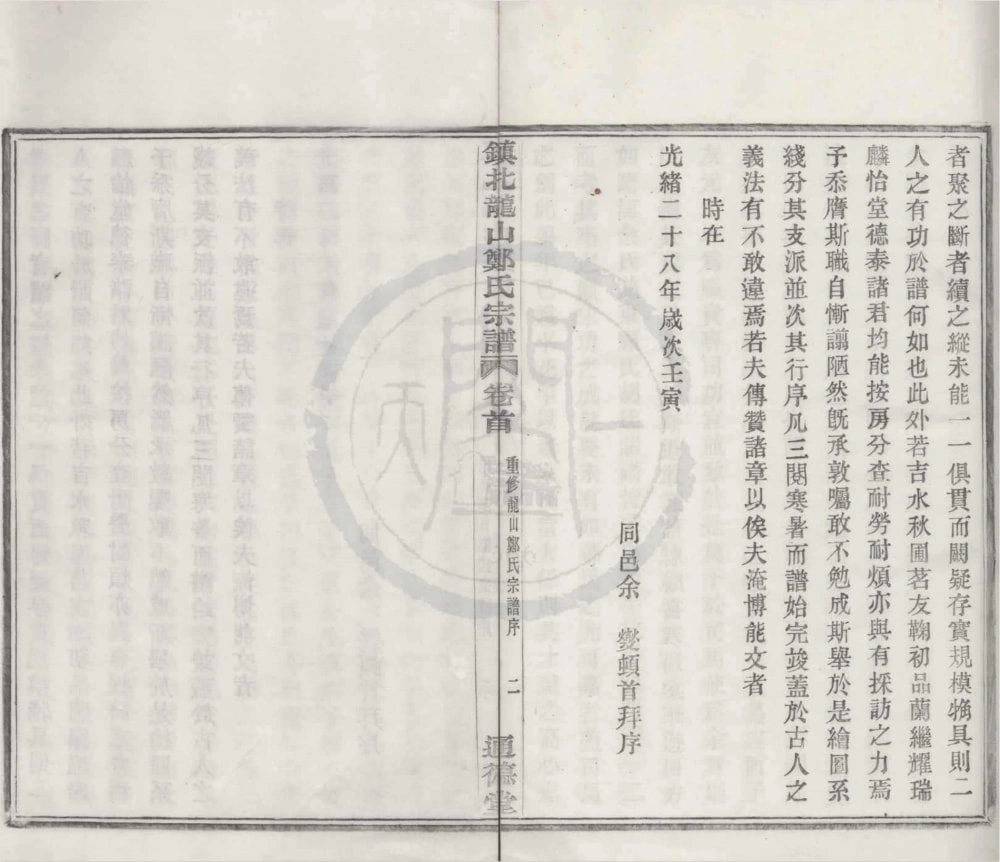 者聚之斷者續之縱未能一一俱貫而闕疑存實規模觕具則二
人之有功於譜何如也此外若吉水秋圃茗友鞠初品蘭繼耀瑞
麟怡堂德泰諸君均能按房分查耐勞耐煩亦與有採訪之力焉
予忝膺斯職自慚譾陋然既承敦囑敢不勉成斯舉於是繪圖系
綫分其支派並次其行序凡三閱寒暑而譜始完竣蓋於古人之
義法有不敢違焉若夫傳贊誥章以俟夫淹博能文者
時在
光緒二十八年歲次壬寅
同邑余 燮頓首拜序
鎮北龍山鄭氏宗譜 卷首 重修龍山鄭氏宗譜序 二 通德堂